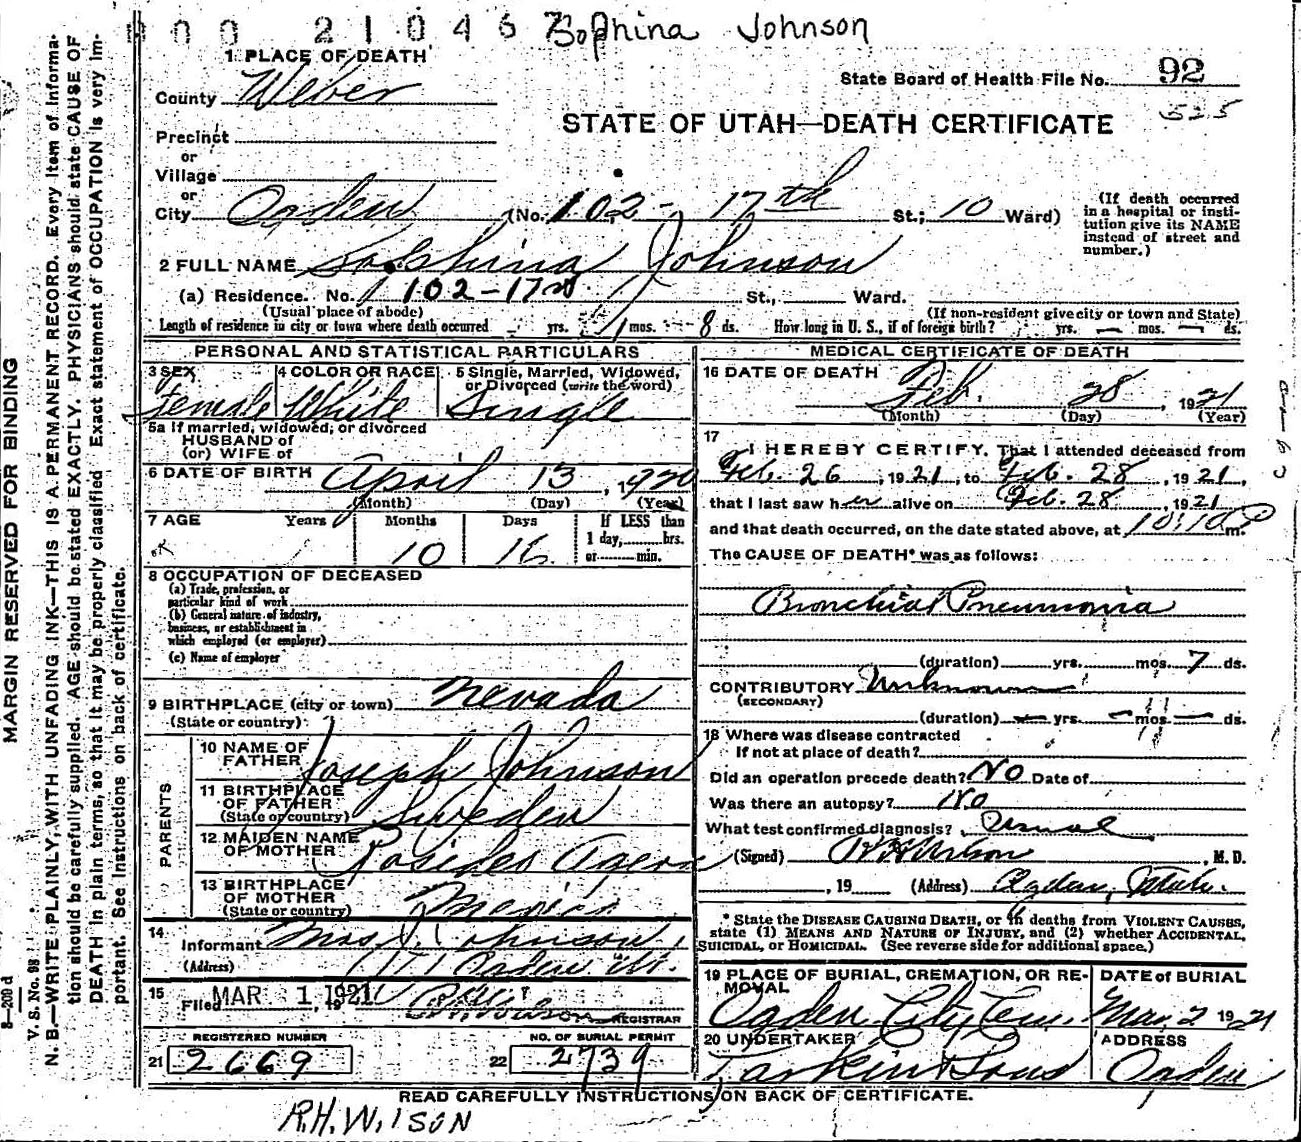 00 21046 Sophina Johnson
1 PLACE OF DEATH
State Board of Health File No. 92
County Weber
525
STATE OF UTAH—DEATH CERTIFICATE
Precinct
or
Village
or
City Ogden (No. 102- 17th St.; 10 Ward)
(If death occurred in a hospital or institution give its NAME instead of street and number.)
2 FULL NAME Sophina Johnson
(a) Residence. No. 102-17th St., Ward.
(Usual place of abode) (If non-resident give city or town and State)
Length of residence in city or town where death occurred yrs. 1 mos. 8 ds. How long in U. S., if of foreign birth? yrs. — mos. — ds.
PERSONAL AND STATISTICAL PARTICULARS
3 SEX 4 COLOR OR RACE 5 Single, Married, Widowed, or Divorced (write the word)
Female White Single
5a If married, widowed, or divorced
HUSBAND of
(or) WIFE of
6 DATE OF BIRTH April 13, 1920
(Month) (Day) (Year)
7 AGE Years Months Days If LESS than
1 day, hrs.
or min.
10 16
8 OCCUPATION OF DECEASED
(a) Trade, profession, or
particular kind of work
(b) General nature of industry,
business, or establishment in
which employed (or employer)
(c) Name of employer
9 BIRTHPLACE (city or town) Nevada
(State or country)
PARENTS
10 NAME OF
FATHER Joseph Johnson
11 BIRTHPLACE
OF FATHER Sweden
(State or country)
12 MAIDEN NAME
OF MOTHER
13 BIRTHPLACE
OF MOTHER Mexico
(State or country)
14
Informant Mrs J. Johnson
(Address) Ogden Ut.
15
Filed MAR 1 1921, 19 REGISTRAR
REGISTERED NUMBER NO. OF BURIAL PERMIT
21 2669 22 2739
MEDICAL CERTIFICATE OF DEATH
16 DATE OF DEATH
Feb. 28, 1921
(Month) (Day) (Year)
17
I HEREBY CERTIFY, That I attended deceased from
Feb. 26, 1921, to Feb. 28, 1921,
that I last saw her alive on Feb. 28, 1921
and that death occurred, on the date stated above, at 10:10 P m.
The CAUSE OF DEATH* was as follows:
Bronchial Pneumonia
(duration) yrs. mos. 7 ds.
CONTRIBUTORY Unknown
(SECONDARY)
(duration) — yrs. — mos. — ds.
18 Where was disease contracted
If not at place of death?
Did an operation precede death? No Date of
Was there an autopsy? No
What test confirmed diagnosis? Usual
(Signed) R H Wilson, M. D.
, 19 (Address) Ogden, Utah.
* State the DISEASE CAUSING DEATH, or in deaths from VIOLENT CAUSES,
state (1) MEANS AND NATURE OF INJURY, and (2) whether ACCIDENTAL,
SUICIDAL, or HOMICIDAL. (See reverse side for additional space.)
19 PLACE OF BURIAL, CREMATION, OR REMOVAL DATE of BURIAL
Ogden City Cem. Mar. 2 1921
20 UNDERTAKER ADDRESS
Larkin & Sons Ogden
READ CAREFULLY INSTRUCTIONS ON BACK OF CERTIFICATE.
R.H. WILSON
MARGIN RESERVED FOR BINDING
N. B.—WRITE PLAINLY, WITH UNFADING INK—THIS IS A PERMANENT RECORD. Every item of information should be carefully supplied. AGE should be stated EXACTLY. PHYSICIANS should state CAUSE OF DEATH in plain terms, so that it may be properly classified. Exact statement of OCCUPATION is very important. See Instructions on back of certificate.
V. S. No. 98
8—209 d